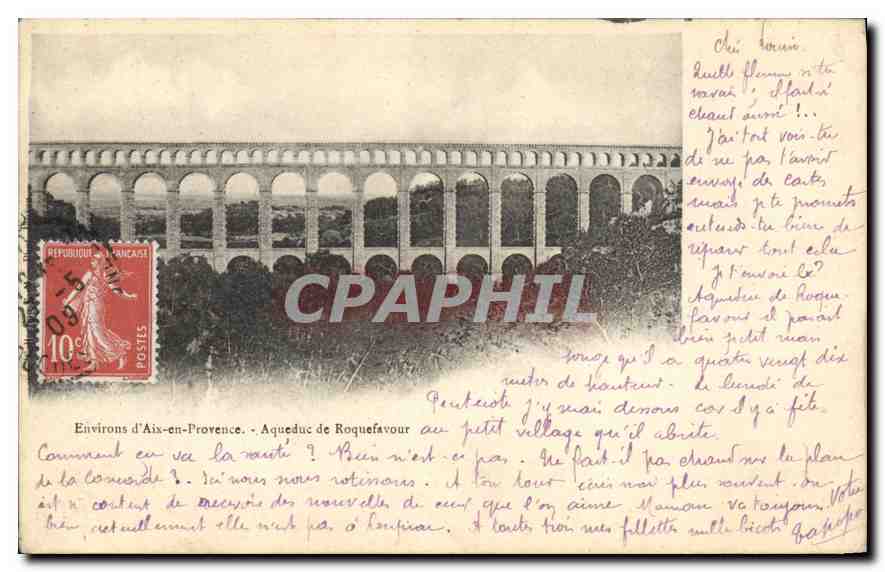 Chéri
Quelle flemme si tu
savais ; il fait si
chaud aussi !..
J'ai tort vois-tu
de ne pas t'avoir
envoyé des cartes
mais je te promets
entends-tu bien de
réparer tout cela
Je t'envoie
Aqueduc de Roque-
favour il parait
bien petit mais
songe qu'il a quatre vingt dix
metres de hauteur - le lundi de
Pentecote j'y serai dessous car il y a fête
au petit village qu'il abrite.
REPUBLIQUE FRANÇAISE
10c
POSTES
CPAPHIL
Environs d'Aix-en-Provence. - Aqueduc de Roquefavour
Comment en va la santé ? Bien n'est-ce pas. Ne fait-il pas chaud sur la place
de la Concorde ?. Ici nous nous rotissons. A ton tour écris moi plus souvent. on
est si content de recevoir des nouvelles de ceux que l'on aime. Maman va toujours
bien, actuellement elle n'est pas à A toutes trois mes fillettes mille bicots
Votre